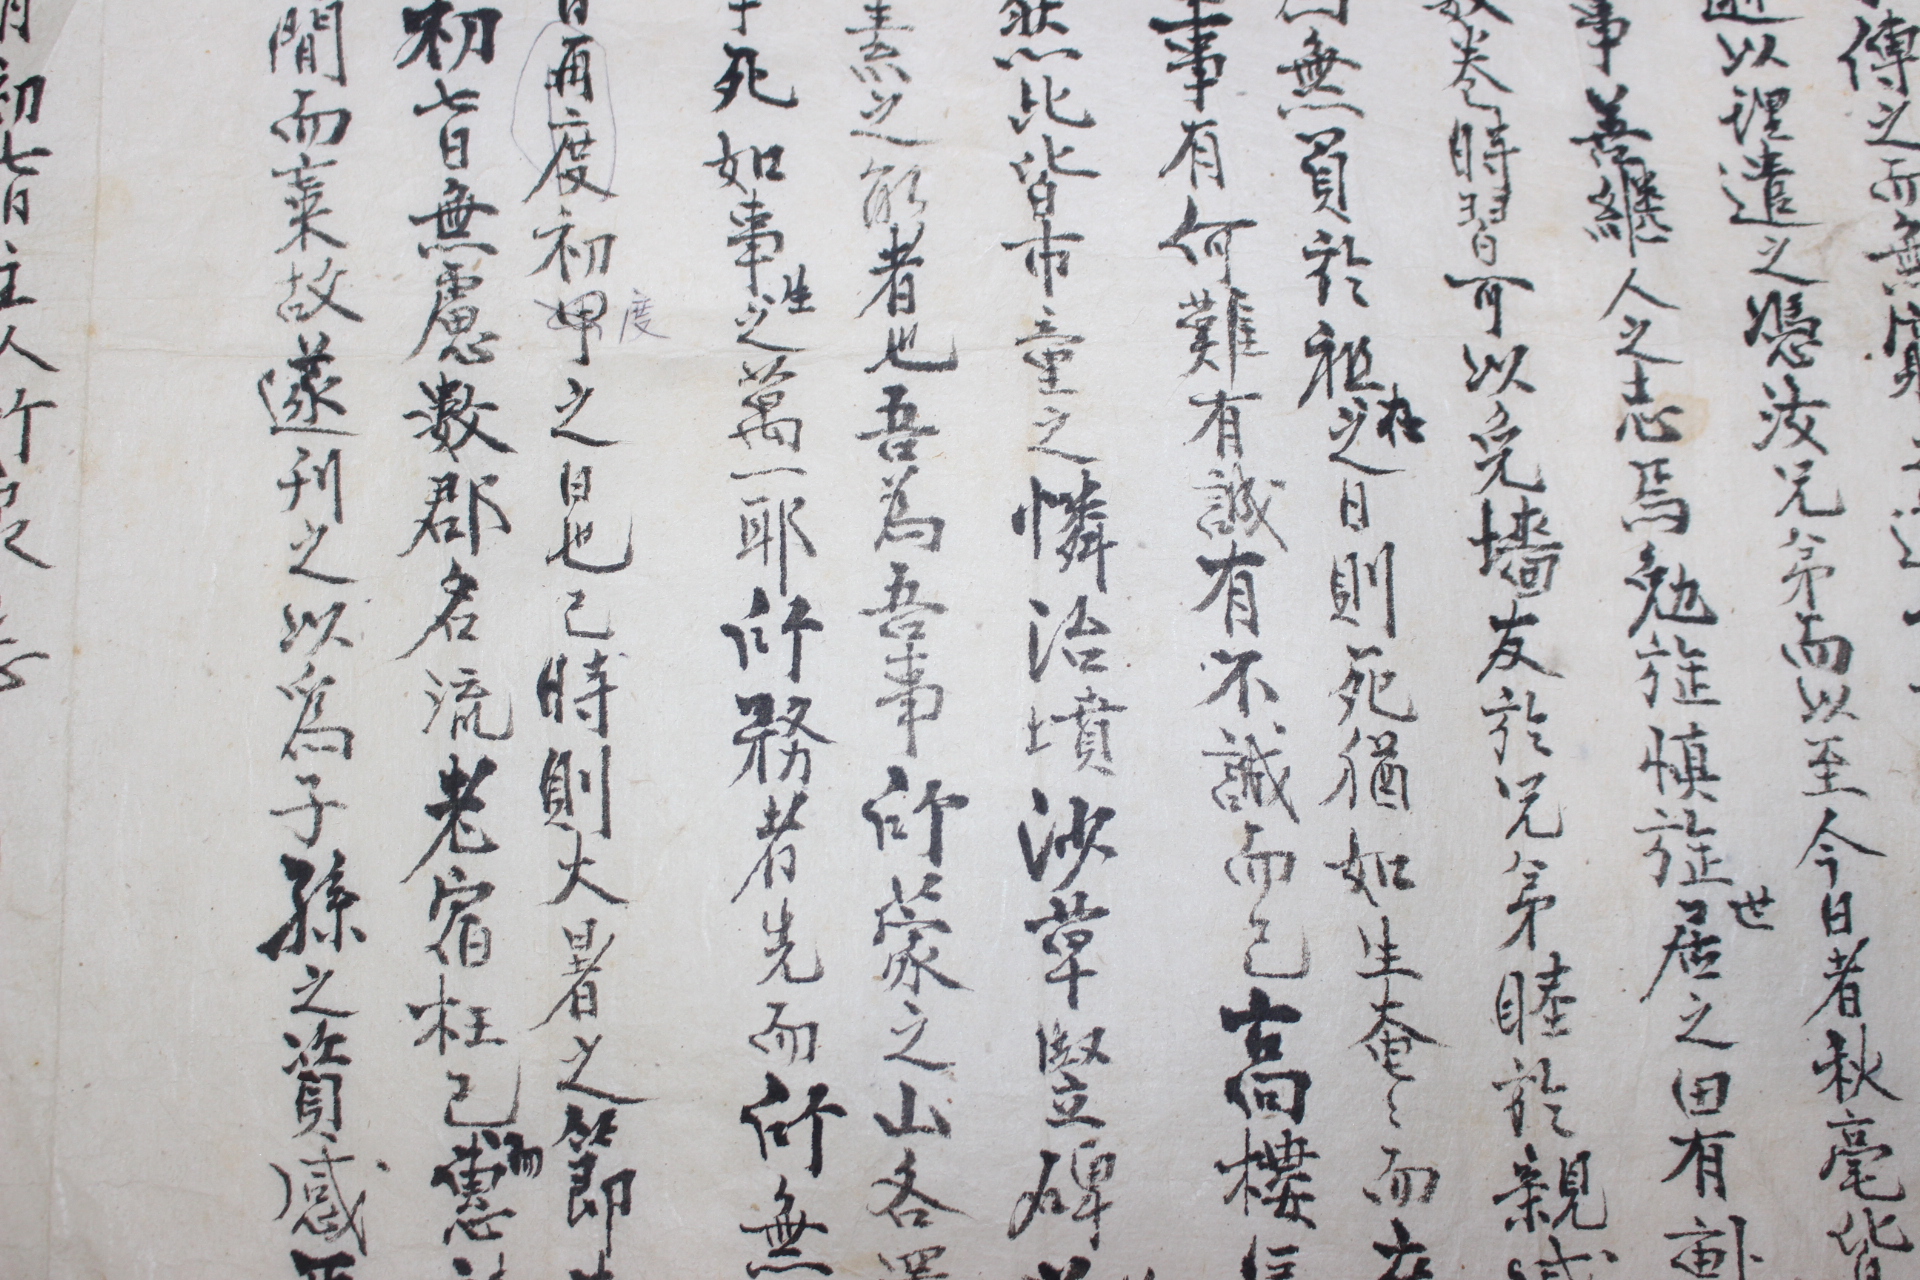 傳之而無
以理遣之憑汝兄弟而以至今日者秋毫皆
事善繼人之志焉勉旃愼旃世居之田有
卷時習可以免墻友於兄弟睦於親
無負於祖在之日則死猶如生奄奄而在
事有何難有誠有不誠而已高樓
然此皆市童之憐治墳沙草竪碑
素之能者也吾爲吾事所蒙之山各
死如事生之萬一耶所務者先而所無
日再度初甲度之日也己時則大暑之節
初七日無慮數郡名流老宿枉己而惠
聞而棄故遂刊之以爲子孫之資感
月初七日主人竹